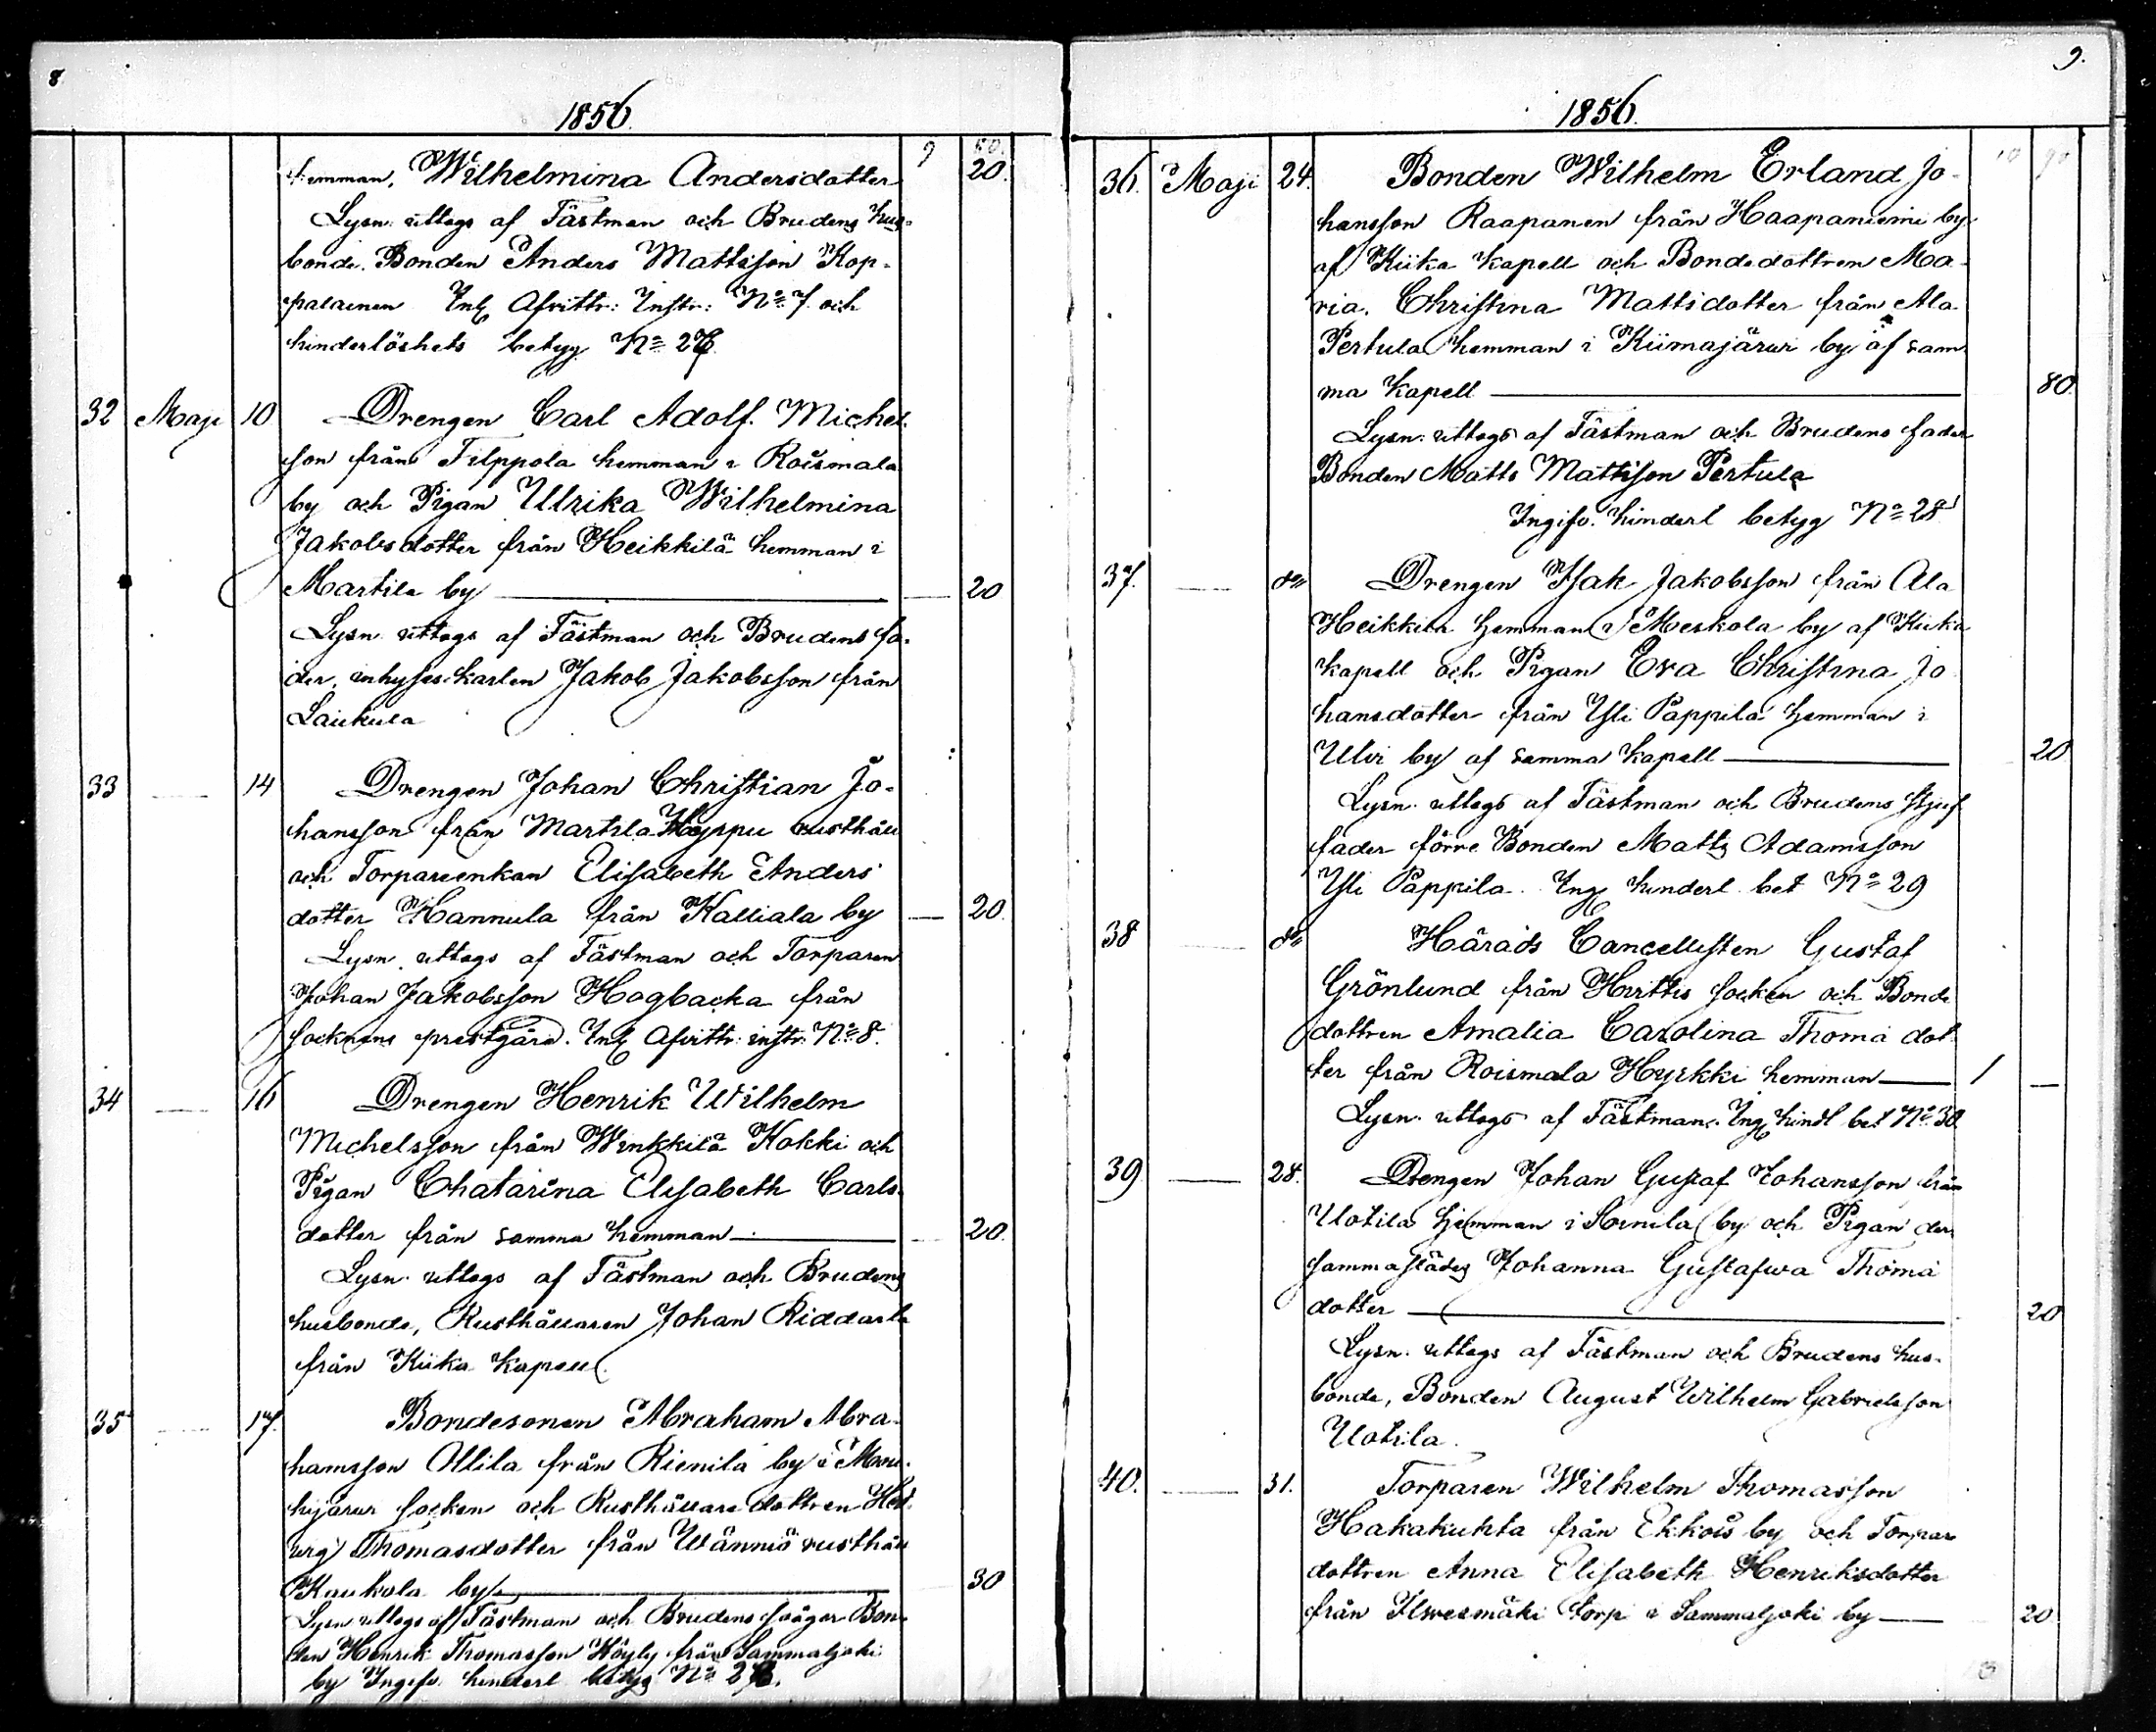 8
1856.
9 60.
hemman, Wilhelmina Andersdotter 20.
Lysn: uttogs af Fästman och Brudens hus-
bonde. Bonden Anders Mattsson Kop-
palainen Afvittr: Instr: No 7. och
hinderlöshets betyg No
32 Maji 10 Drengen Carl Adolf. Michel-
son från Filppola hemman i Roismala
by och Pigan Ulrika Wilhelmina
Jakobsdotter från Heikkilä hemman i
Martila by — 20
Lysn. uttogs af Fästman och Brudens fa-
der, inhyses karlen Jakob Jakobsson från
Laukula
33 — 14 Drengen Johan Christian Jo-
hansson från Martila Hyrppu rusthåll
och Torpareenkan Elisabeth Anders
dotter Hannula från Kalliala by — 20.
Lysn. uttogs af Fästman och Torparen
Johan Jakobsson Hogbacka från
Socknens prestgård. Afvittr: instr. No 8.
34 — 16 Drengen Henrik Wilhelm
Michelsson från Winkkilä Kokki och
Pigan Chatarina Elisabeth Carls-
dotter från samma hemman — 20.
Lysn. uttogs af Fästman och Brudens
husbonde, Rusthållaren Johan Riddarla
från Kiika Kapell.
35 — 17. Bondesonen Abraham Abra-
hamsson Ollila från Rienila by i Mou-
hijärvi socken och Rusthållare dottren Hed-
vig Thomasdotter från Wänniö rusthåll
Kaukola by — 30
Lysn uttogs af Fästman och Brudens svåger Bon-
den Henrik Thomasson Höyly från Sammaljoki
by Ingifv. hinderl. betyg No
9.
1856.
10 90
36. Maji 24. Bonden Wilhelm Erland Jo-
hansson Raapanen från Haapaniemi by
af Kiika Kapell och Bondedottren Ma-
ria. Christina Mattsdotter från Ala
Pertula hemman i Kiimajärvi by af sam-
ma Kapell — 80.
Lysn. uttogs af Fästman och Brudens fader
Bonden Matts Mattsson Pertula
Ingifv. hinderl betyg No 28
37. — do Drengen Isak Jakobsson från Ala
Heikkilä hemman i Meskola by af Kiika
Kapell och Pigan Eva Christina Jo
hansdotter från Yli Pappila hemman i
Ulvi by af samma Kapell — 20
Lysn. uttogs af Fästman och Brudens stjuf
fader förre Bonden Matts Adamsson
Yli Pappila. Ing. hinderl. bet No 29
38 — do Härads Cancellisten Gustaf
Grönlund från Hvittis Socken och Bonde
dottren Amalia Carolina Thoma dot-
ter från Roismala Hyrkki hemman — 1 —
Lysn. uttogs af Fästman. Ing. hindl bet No 30
39 — 28. Drengen Johan Gustaf Johansson från
Uotila hemman i by och Pigan der
sammastädes Johanna Gustafva Thoma
dotter — 20
Lysn. uttogs af Fästman och Brudens hus-
bonde, Bonden August Wilhelm Gabrielsson
Uotila.
40. — 31. Torparen Wilhelm Thomasson
Hakakukta från Ekkois by och Torpar
dottren Anna Elisabeth Henriksdotter
från Ilvesmäki torp i Sammaljoki by — 20